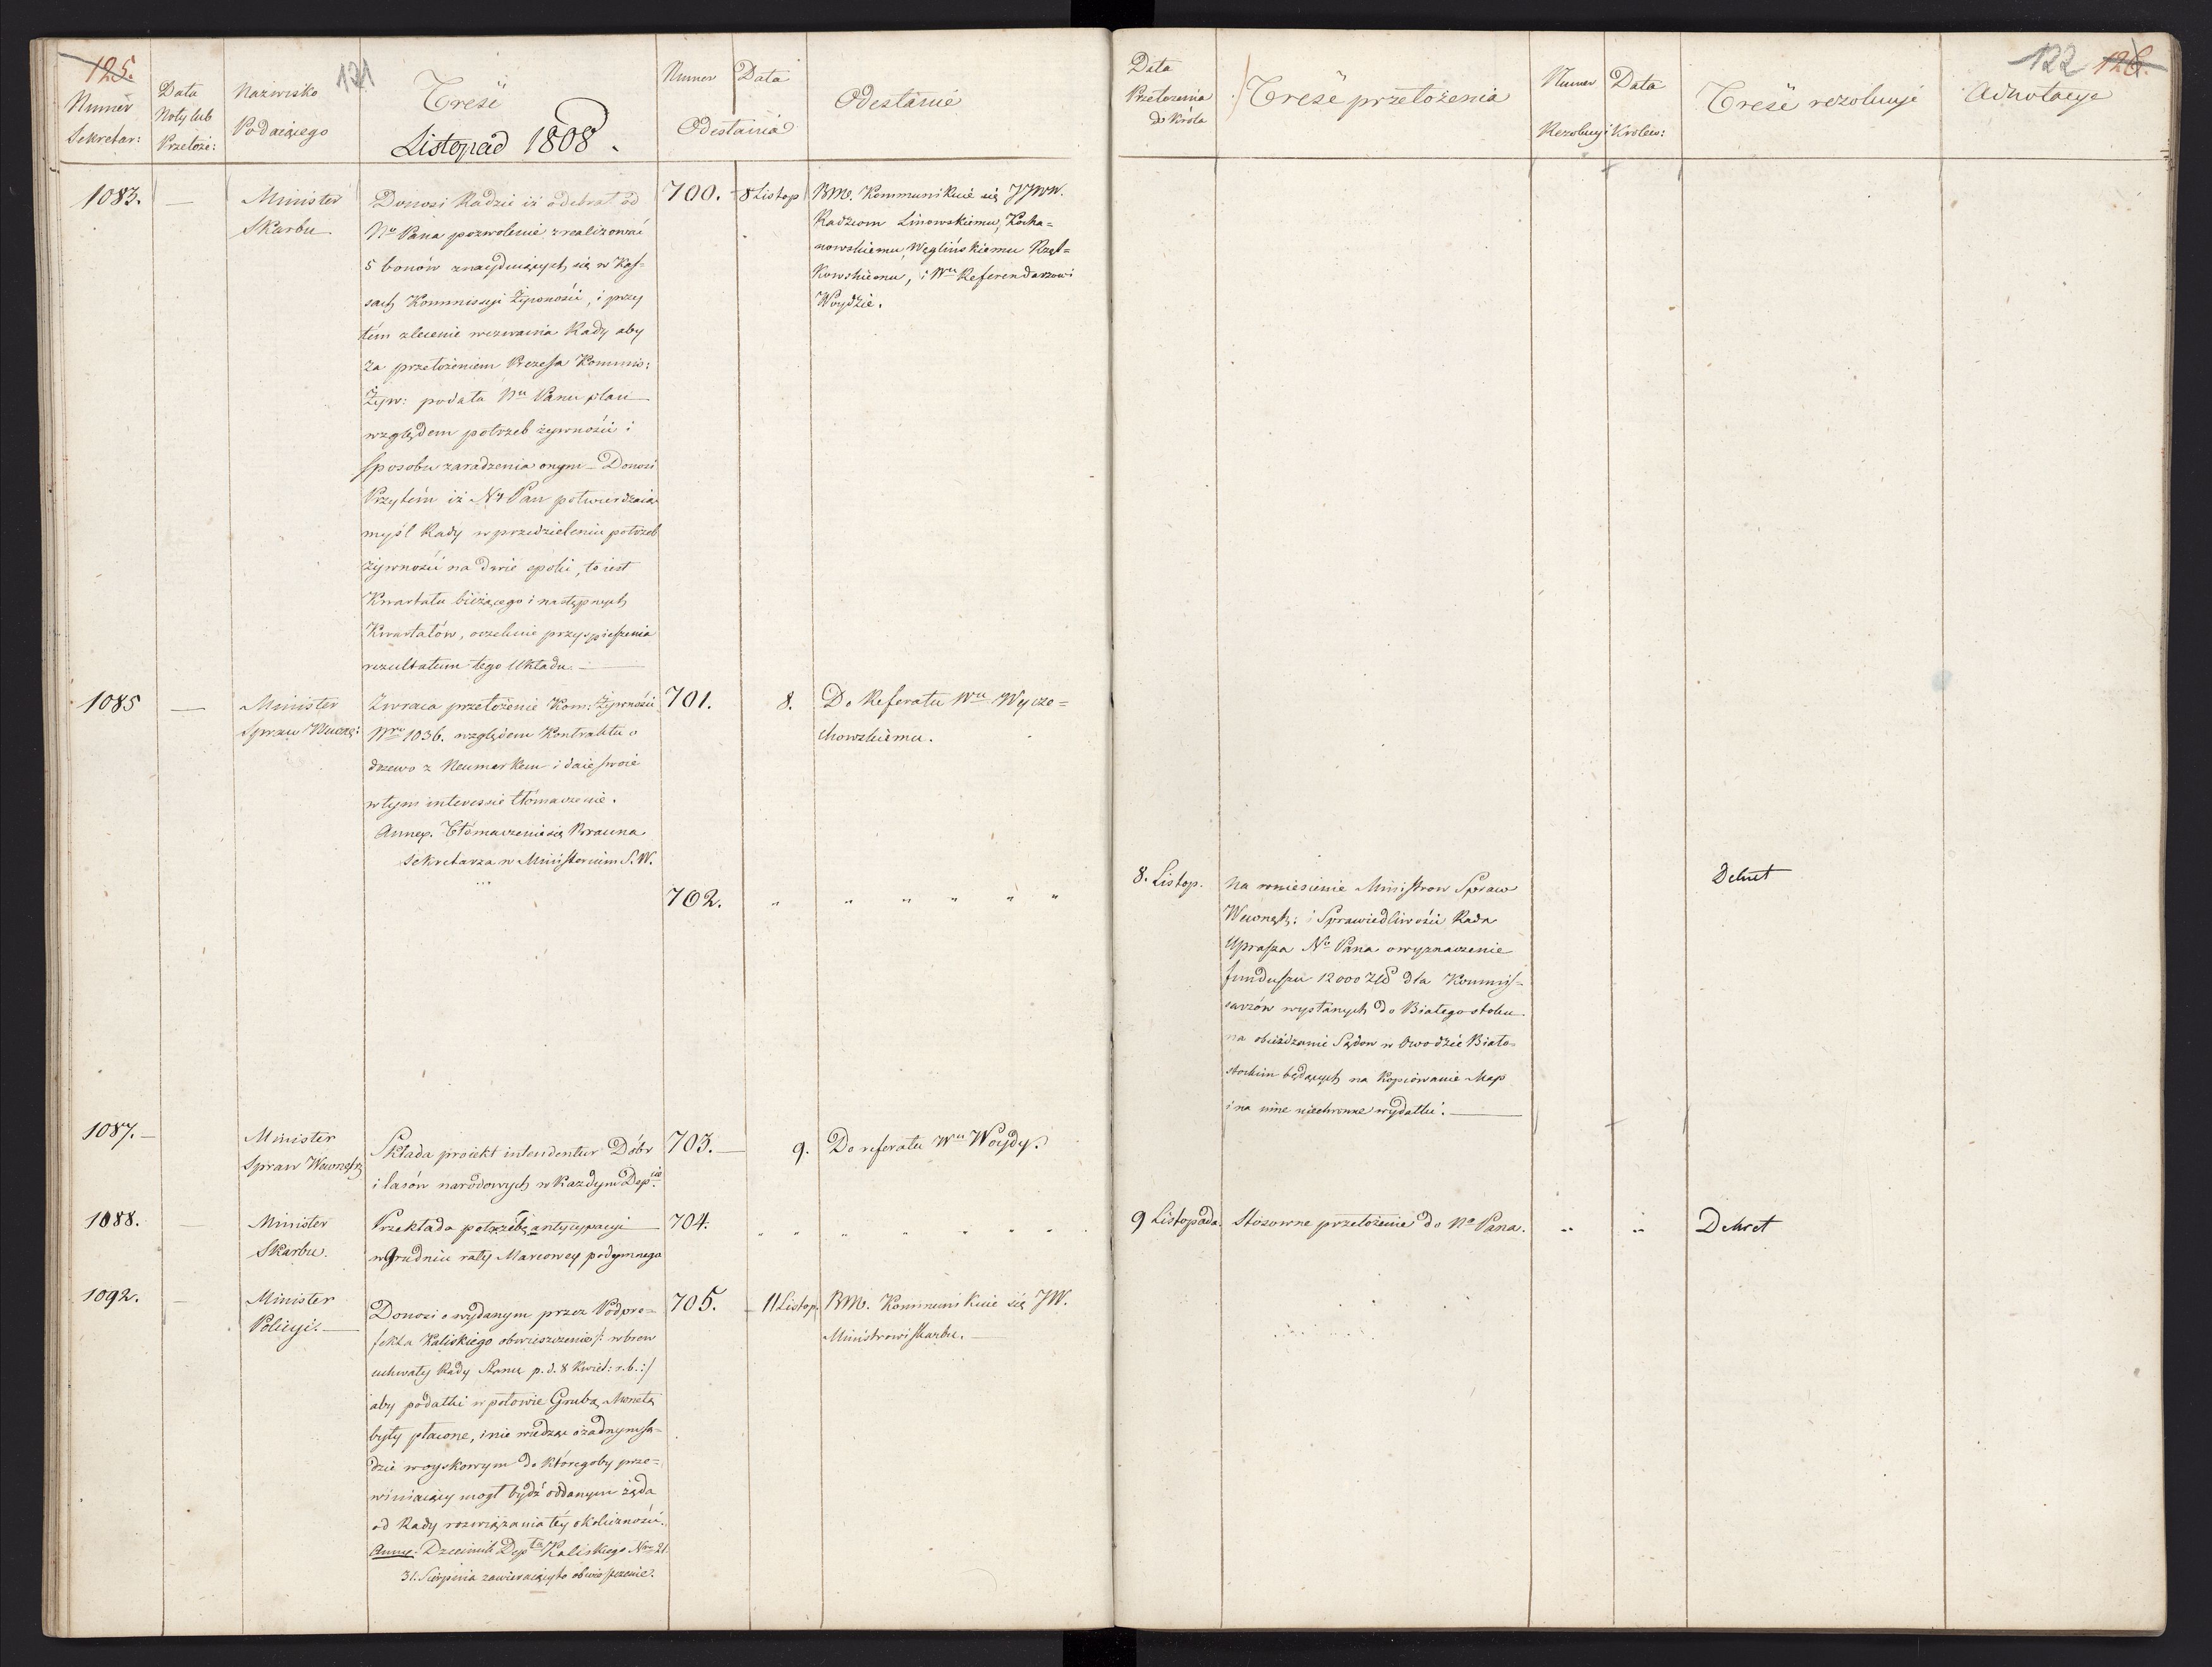 125.
121
Numer
Sekretar:
Data
Noty lub
Przełoże:
Nazwisko
Podaiącego
Treść
Listopad 1808.
Numer Data
Odesłania
Odesłanie
1083. —
Minister
Skarbu
Donosi Radzie iż odebrał od
Nº Pana pozwolenie zrealizować
5 bonów znayduiących się w Kas-
sach Kommissyi Żywności, i przy
tém zlecenie wezwania Rady aby
za przełożeniem Prezessa Kommis:
Żyw: podała Nu Panu plan
względem potrzeb żywności i
sposobu zaradzenia onym — Donosi
Przytém iż Ny Pan potwierdzaiąc
myśl Rady w przedzieleniu potrzeb
żywności na dwie epoki, to iest
Kwartału bieżącego i następnych
Kwartałów, oczekuie przyspieszenia
rezultatem tego Układu. —
700. 8 Listop
BM. Kommunikuie się JJWW.
Radzcom Linowskiemu, Kocha=
nowskiemu, Węglińskiemu Rzęt=
kowskiemu, i Wu Referendarzowi
Woydzie.
1085 —
Minister
Spraw Wewnę:
Zwraca przełożenie Kom: Żywności
Nro 1036. względem Kontraktu o
drzewo z Neumarkem i daie swoie
w tym interessie tłómaczenie.
Annex. Tłómaczenie się Brauna
Sekretarza w Ministerium S. W.
701. 8.
Do Referatu Wu Wycze=
chowskiemu.
702. " " " " " "
1087. —
Minister
Spraw Wewnętrz
Składa proiekt intendentur Dóbr
i lasów narodowych w każdym Depcie
703. — 9.
Do referatu Wu Woydy.
1088. —
Minister
Skarbu.
Przekłada potrzebę antycypacyi
w Grudniu raty Marcowey podymnego
704. " " " " " "
1092. —
Minister
Policyi. —
Donosi o wydanym przez Podpre=
fekta Kaliskiego obwieszczeniu /: wbrew
uchwały Rady Stanu p. d. 8 Kwiet: r. b. :/
aby podatki w połowie Grubą Monetą
były płacone, i nie wiedząc o żadnym są=
dzie woyskowym do któregoby prze=
winiaiący mógł bydź oddanym żąda
od Rady rozwiązania téy okoliczności.
Annex. Dziennik Depta Kaliskiego Nro 21.
31. Sierpnia zawieraiący to obwieszczenie.
705. — 11 Listop.
BM. Kommunikuie się JW.
Ministrowi Skarbu. —
122 126.
Data
Przełożenia
do Króla
Treść przełożenia
Numer Data
Rezolucyi Królew:
Treść rezolucyi
Adnotacye
8. Listop.
Na wniesienie Ministrow Spraw
Wewnętz: i Sprawiedliwości Rada
Uprasza Nº Pana o wyznaczenie
funduszu 12000 Złp dla Kommis=
sarzów wysłanych do Białegostoku
na obieżdzanie Sądow w Obwodzie Biało=
stockim będących na kopiowanie Map
i na inne niechronne wydatki. —
Dekret
9 Listopada. Stosowne przełożenie do Nº Pana. " " Dekret